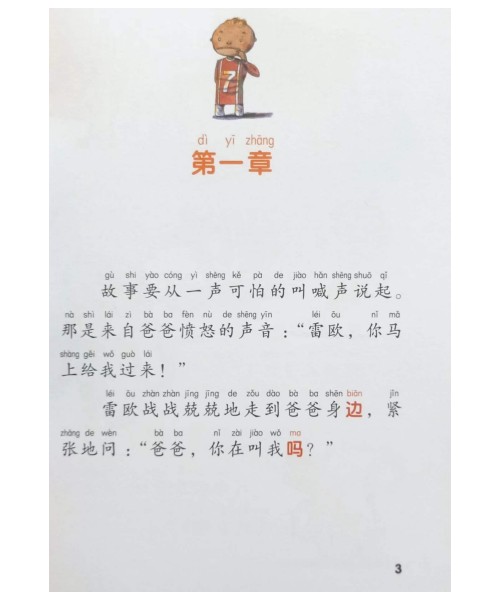 7
dì yī zhāng
第一章
gù shi yào cóng yì shēng kě pà de jiào hǎn shēng shuō qǐ
故事要从一声可怕的叫喊声说起。
nà shì lái zì bà ba fèn nù de shēng yīn léi ōu nǐ mǎ
那是来自爸爸愤怒的声音：“雷欧，你马
shàng gěi wǒ guò lái
上给我过来！”
léi ōu zhàn zhàn jīng jīng de zǒu dào bà ba shēn biān jǐn
雷欧战战兢兢地走到爸爸身边，紧
zhāng de wèn bà ba nǐ zài jiào wǒ ma
张地问：“爸爸，你在叫我吗？”
3